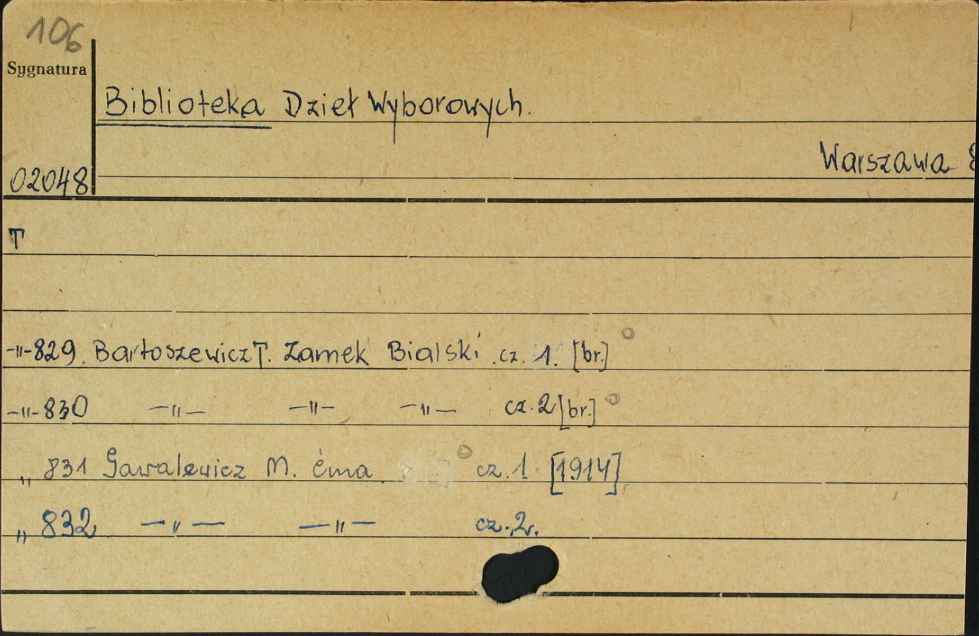 106
Sygnatura
Biblioteka Dzieł Wyborowych.
Warszawa 8
02048
T
-"-829. Bartoszewicz T. Zamek Bialski cz. 1. [br.]
-"-830 -"- -"- -"- cz. 2 [br.]
" 831 Gawalewicz M. Ćma. cz. 1 [1914]
" 832 -"- -"- cz. 2.